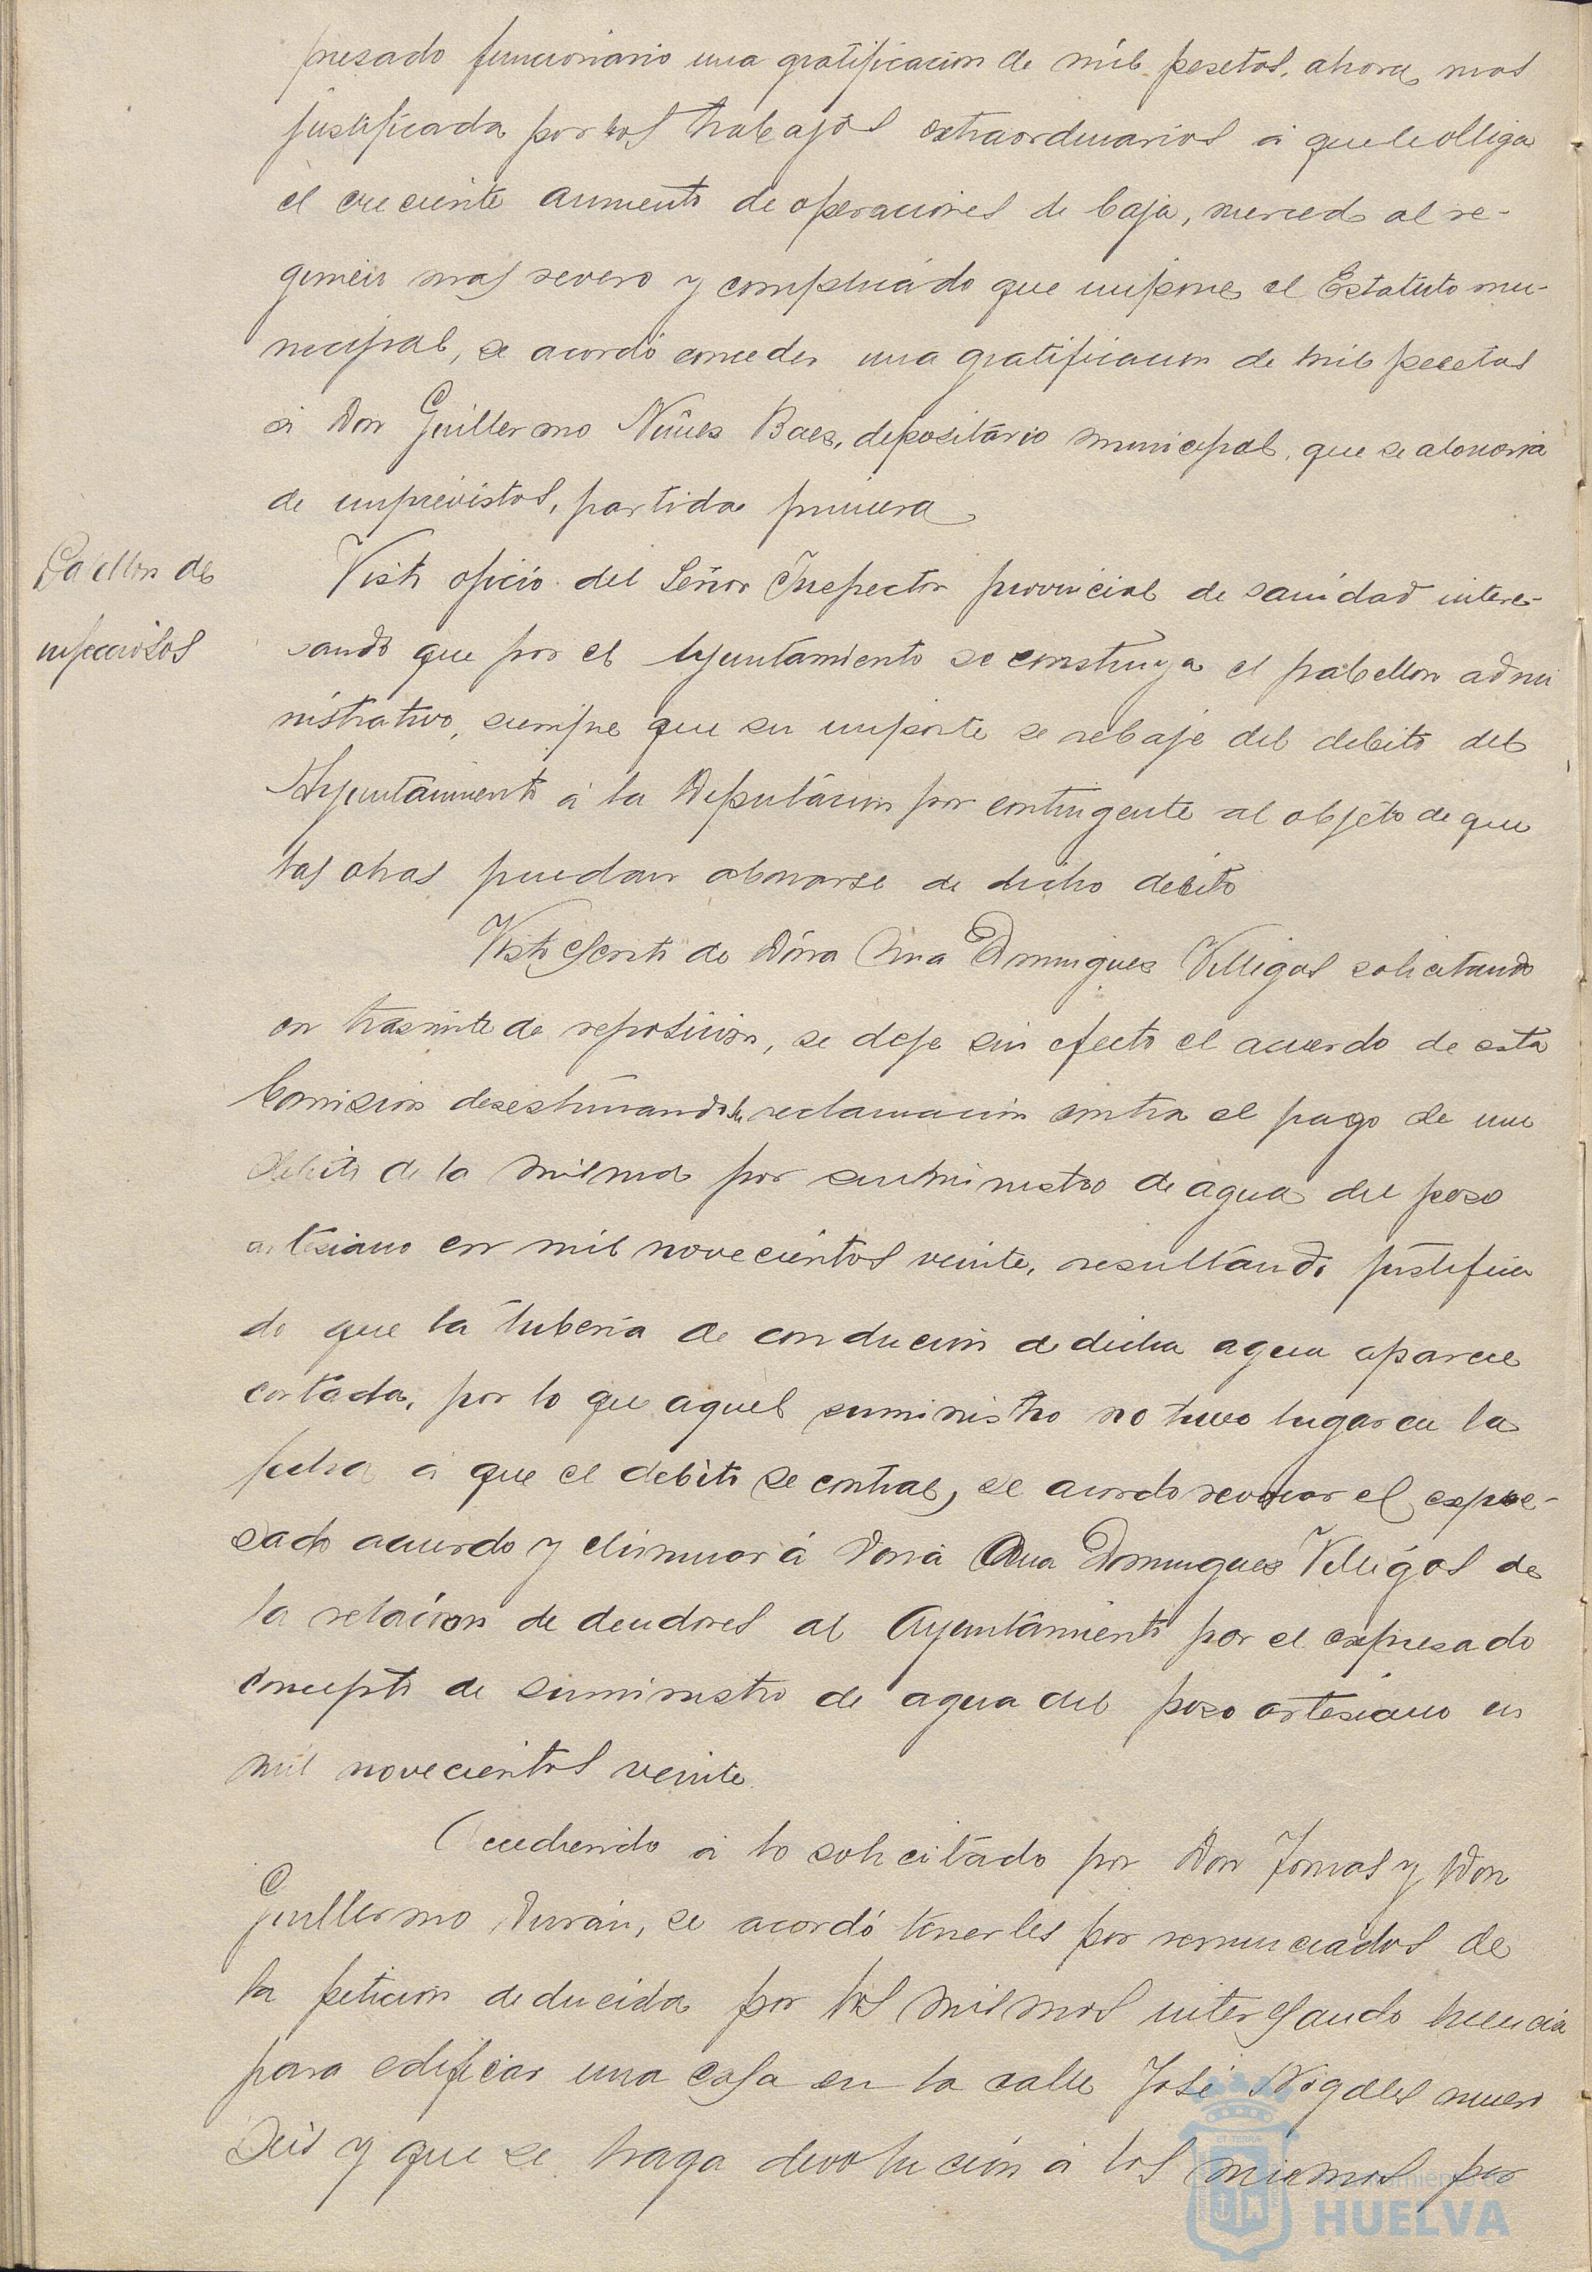 presado funcionario una gratificacion de mil pesetas, ahora mas
justificada por los trabajos extraordinarios á que le obliga
el creciente aumento de operaciones de Caja, merced al re-
gimen mas severo y complicado que impone el Estatuto mu-
nicipal, se acordó conceder una gratificacion de mil pesetas
á Don Guillermo Nuñes Baes, depositario municipal, que se abonaria
de imprevistos, partida primera
Pabellon de
infecciosos
Visto oficio del Señor Inspector provincial de sanidad intere-
sando que por el Ayuntamiento se construya el pabellon admi
nistrativo, siempre que su importe se rebaje del debito del
Ayuntamiento á la Diputación por contingente al objeto de que
las obras puedan abonarse de dicho debito
Visto escrito de Doña Ana Domingues Villigas solicitando
en trasmite de reposicion, se deje sin efecto el acuerdo de esta
Comision desestimando la reclamacion contra el pago de un
debito de la misma por suministro de agua del poso
artesiano en mil novecientos veinte, resultando justifica
do que la tuberia de conducion de dicha agua aparece
cortada, por lo que aquel suministro no tuvo lugar en la
fecha á que el debito se contrae, se acordo revocar el expre-
sado acuerdo y eliminar á Doña Ana Domingues Villigas de
la relacion de deudores al Ayuntamiento por el expresado
concepto de suministro de agua del poso artesiano en
mil novecientos veinte.
Accediendo á lo solicitado por Don Tomas y Don
Guillermo Duran, se acordó tenerles por renunciados de
la peticion deducida por los mismos interesando licencia
para edificar una casa en la calle José Nogales nuero
Seis y que se haga devolucion á los mismos por
ET TERRA
Ayuntamiento de
HUELVA